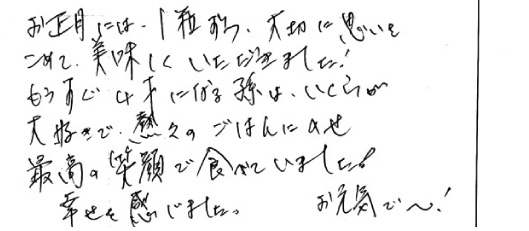 お正月には、1粒ずつ、大切に思いを
こめて、美味しくいただきました!
もうすぐ4才になる孫は、いくらが
大好きで、熱々のごはんにのせ
最高の笑顔で食べていました!
幸せを感じました。 お元気で〜!